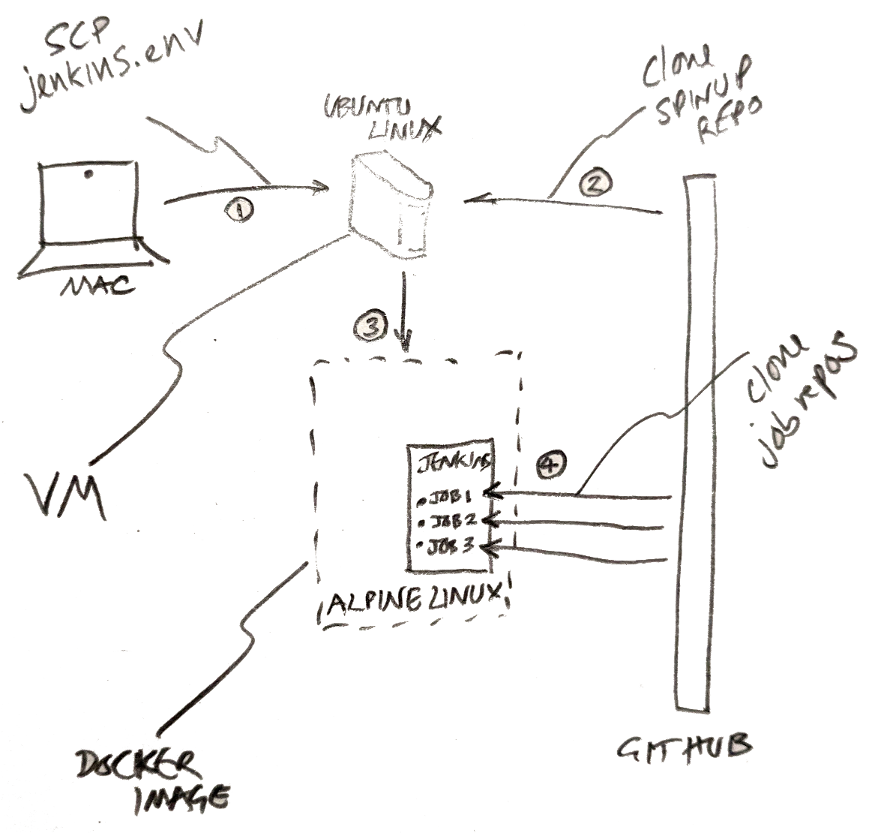 SCP
jenkins.env
UBUNTU
LINUX
clone
SPINUP
REPO
1
2
MAC
3
clone
job repos
VM
JENKINS
4
• JOB 1
• JOB 2
• JOB 3
ALPINE LINUX
DOCKER
IMAGE
GITHUB